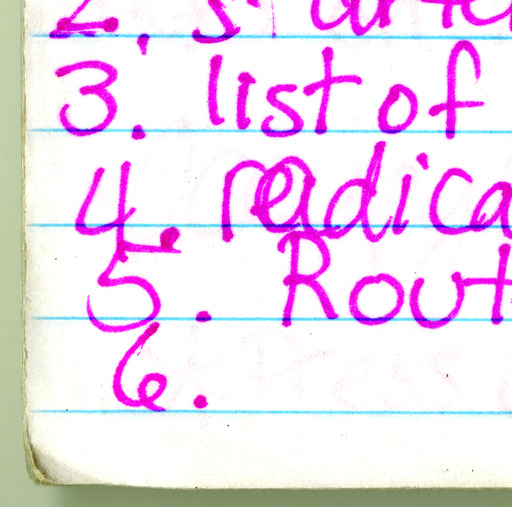 2.
3. list of
4. radica
5. Rout
6.